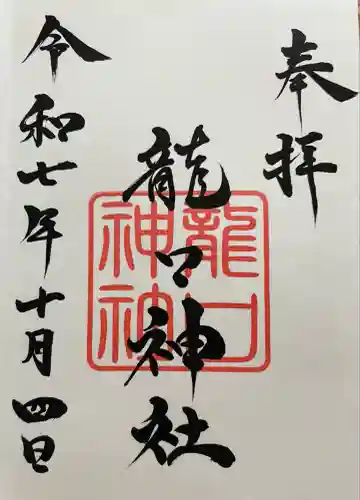 奉拝
龍口神社
龍口
神社
令和七年十月四日